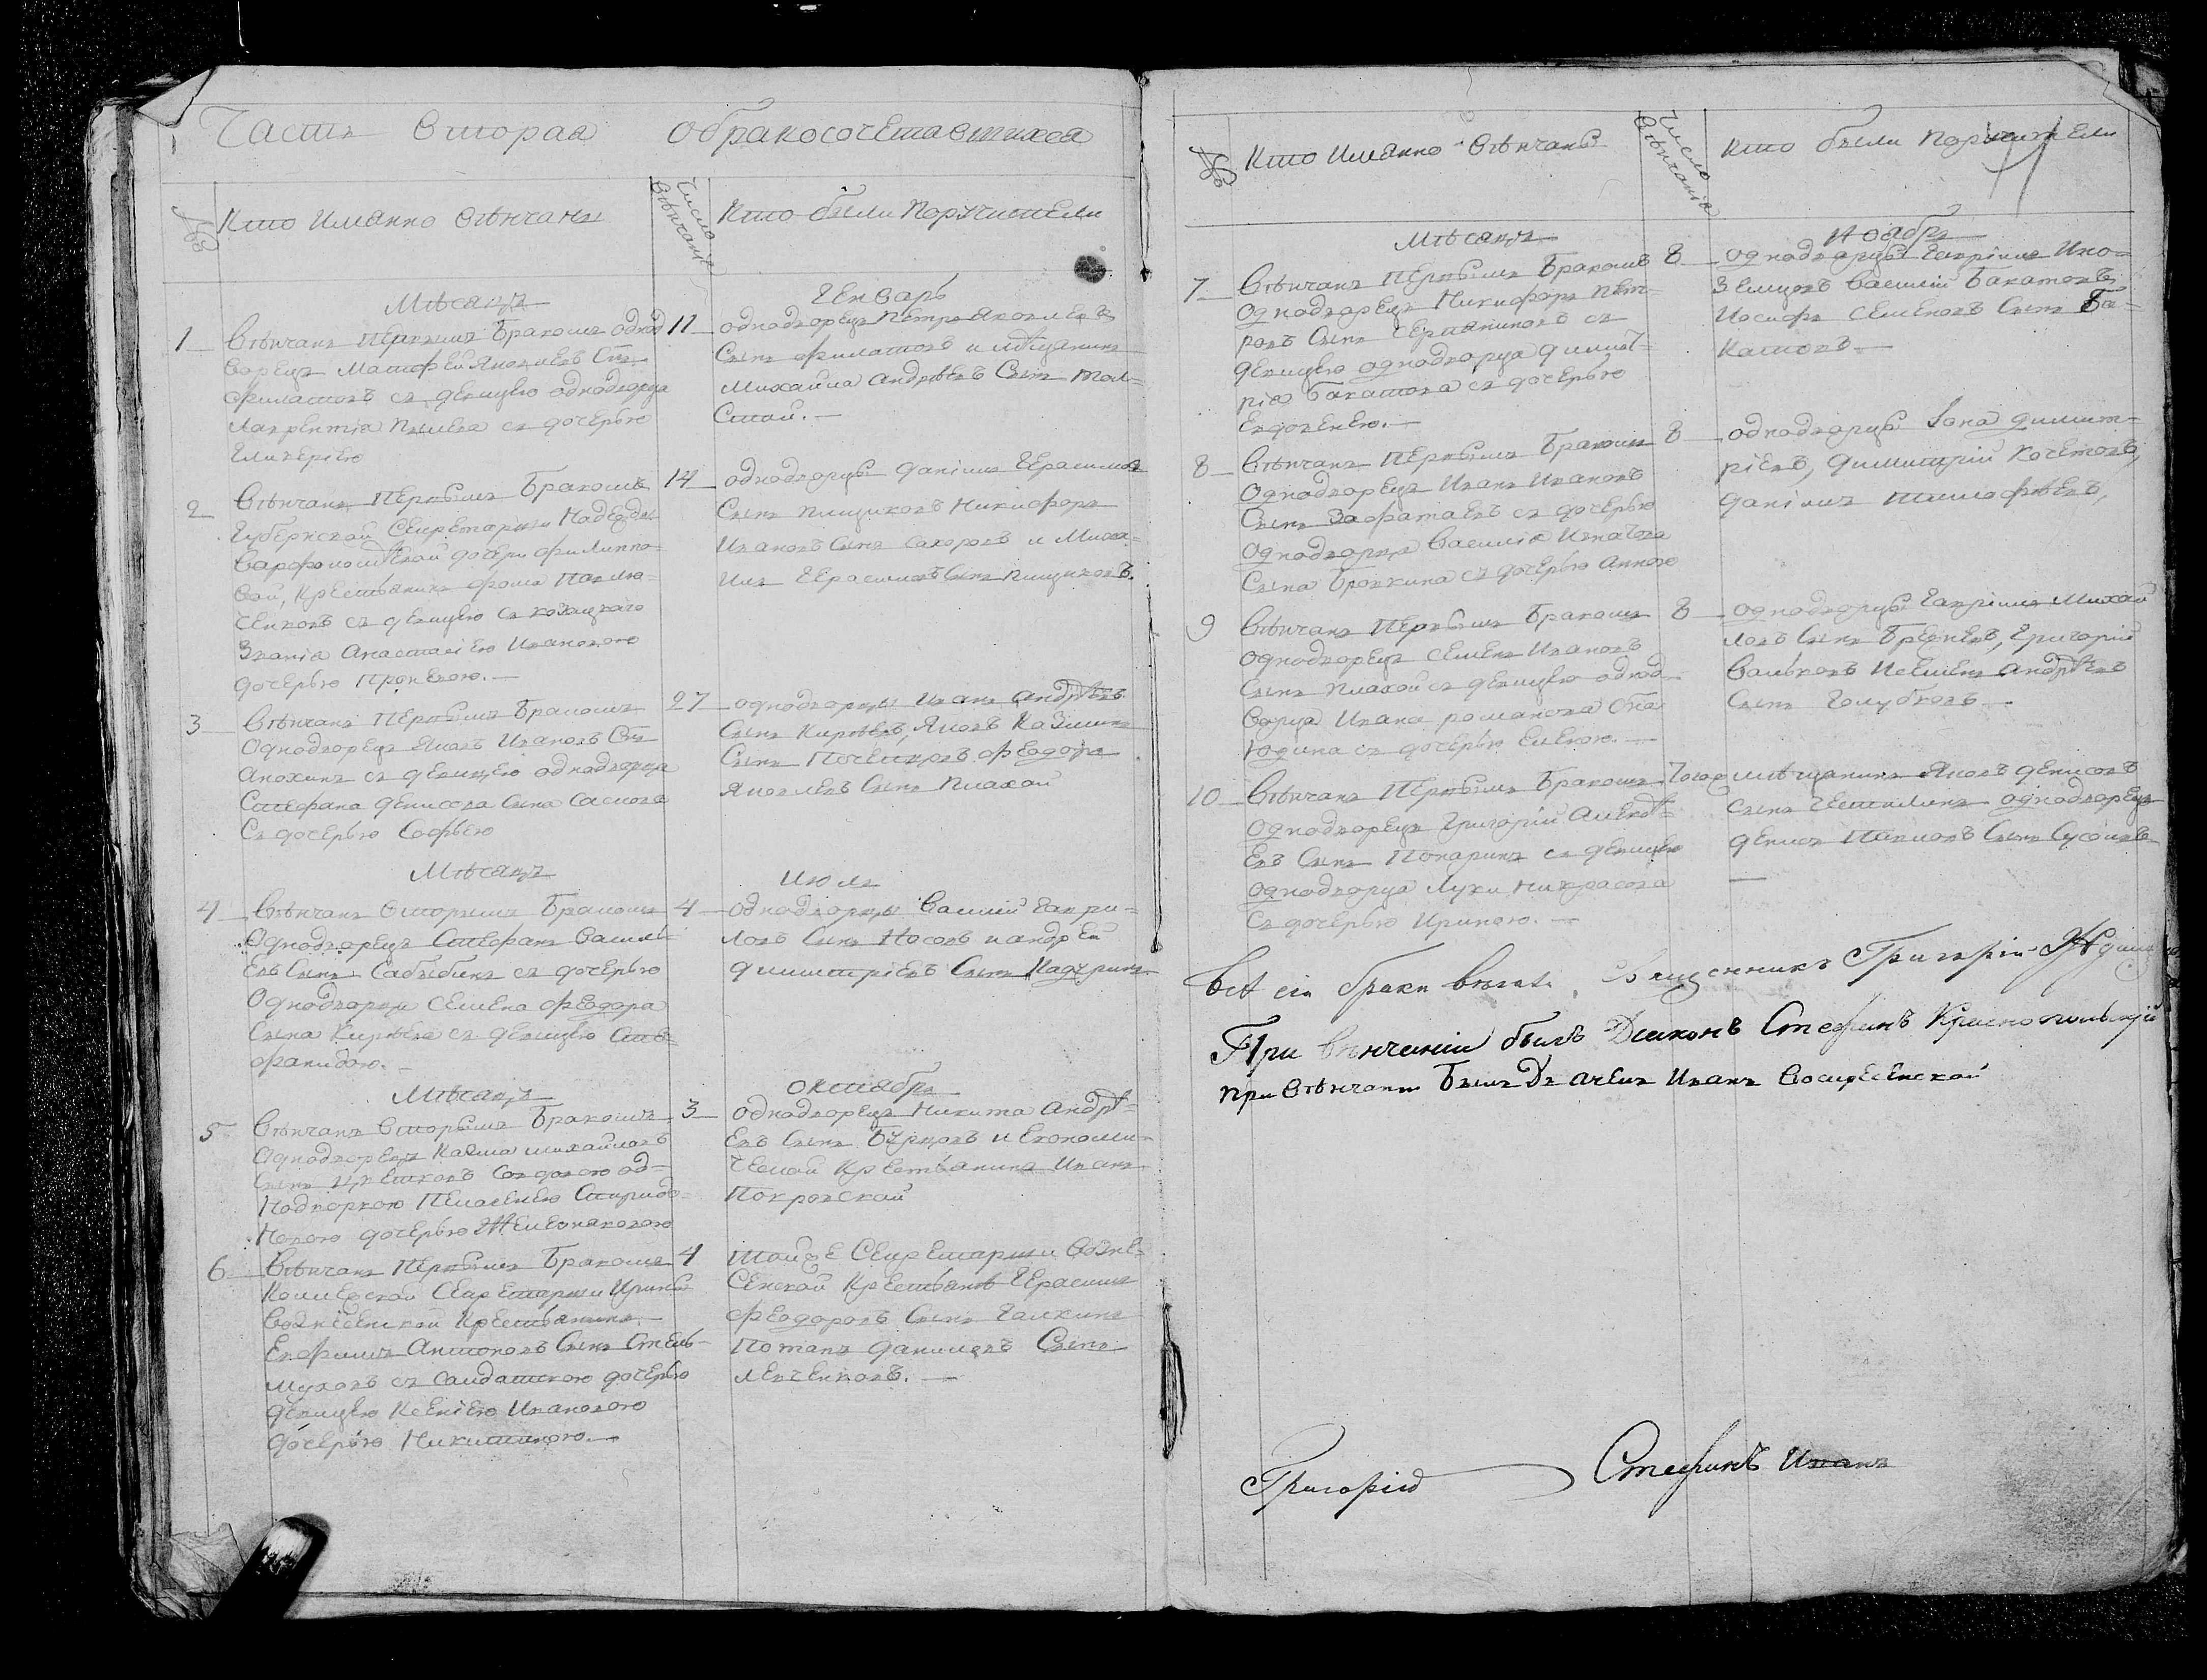 Часть Вторая о бракосочетавшихся
№ Кто имянно вѣнчанъ
Число вѣнчанія
Кто были поручители
Мѣсяцъ Генварь
1 Вѣнчанъ первымъ бракомъ однод
ворецъ Матфей Яковлевъ Снъ
Филатовъ съ девицею однодворца
Лаврентія съ дочерью
Гликерiею
11 однодворецъ Петръ Яковлевъ
Сынъ Филатовъ и мѣщанинъ
Михайла Андрѣевъ Сынъ Тол=
стой.—
2 Вѣнчанъ первымъ бракомъ
Губернской Секретарши Надежды
Варфоломѣевой дочери Филиппо=
вой, крестьянинъ Фома Павлю=
ченковъ съ девицею съ козацкаго
Званія Анастасіею Ивановою
дочерью.—
14 однодворцы Данiилъ Герасимовъ
Сынъ Пищиковъ Никифоръ
Ивановъ Сынъ Сахоровъ и Миха=
илъ Герасимовъ Сынъ Пищиковъ.
3 Вѣнчанъ первымъ бракомъ
Однодворецъ Яковъ Ивановъ Снъ
Анохинъ съ девицею однодворца
Стефана Денисова Сына
Съ дочерью Софьею
27 однодворцы Иванъ Андрѣевъ
Сынъ Кирѣевъ, Яковъ Казминъ
Сынъ Феодоръ
Яковлевъ Сынъ Плахой
Мѣсяцъ Июль
4 Вѣнчанъ вторымъ бракомъ
Однодворецъ Стефанъ Василь=
евъ Сынъ съ дочерью
Однодворца Семена Феодора
Сына Кирѣева съ девицею Сте=
фанидою.—
4 однодворцы Василий Гаври=
ловъ Сынъ Носовъ и Андрей
Димитрiевъ Сынъ
Мѣсяцъ октябрь
5 Вѣнчанъ вторымъ бракомъ
Однодворецъ Казма Михайловъ
Сынъ Цветковъ со вдовою од=
нодворкою Пелагеиею Спиридо=
новою дочерью
3 однодворецъ Никита Андрѣ=
евъ Сынъ и Економи=
ческой крестьянинъ Иванъ
Покровской
6 Вѣнчанъ первымъ бракомъ
Секретарши Ирины
Вознесенской крестьянинъ
Евфимъ Антоновъ Сынъ Стель=
муховъ съ салдатскою дочерью
девицею Ксенiею Ивановою
дочерью Никитиною.—
4 тойже Секретарши Возне=
сенской крестьянѣ Герасимъ
Феодоровъ Сынъ Галкинъ
Потапъ Даниловъ Сынъ
Левченковъ.—
№ Кто имянно вѣнчаны
Число вѣнчанія
Кто были поручители
Мѣсяцъ Ноябрь
7 Вѣнчанъ первымъ бракомъ
Однодворецъ Никифоръ Пет=
ровъ Сынъ съ
девицею однодворца Димит=
рiя Бахтова съ дочерью
Евдокеиею.—
8 однодворцы Гаврiилъ Ино=
земцовъ Василий
Иосифъ Семеновъ Сынъ
8 Вѣнчанъ первымъ бракомъ
Однодворецъ Иванъ Ивановъ
Сынъ съ дочерью
Однодворца Василiя Игнатова
Сына съ дочерью Анною
8 однодворцы Iона Димит=
рiевъ, Димитрiй Кочетовъ,
Данiилъ Тимофѣевъ,
9 Вѣнчанъ первымъ бракомъ
Однодворецъ Семенъ Ивановъ
Сынъ Плахой съ девицею однод
ворца Ивана Романова Сна
Юдина съ дочерью Еленою.—
8 однодворцы Гаврiилъ Михай
ловъ Сынъ Брежневъ, Григорiй
Волковъ и Семенъ Андрѣевъ
Сынъ Голубковъ.—
10 Вѣнчанъ первымъ бракомъ
Однодворецъ Григорiй Алексѣ=
евъ Сынъ съ девицею
Однодворца Луки Никрасова
Съ дочерью Ириною.—
тогоже мѣщанинъ Яковъ Денисовъ
сынъ однодворецъ
Денисъ Сынъ
—
Всѣ сiи браки вѣнчалъ Священникъ Григорiй
При вѣнчанiи былъ Дiаконъ Стефанъ Краснопольскiй
При вѣнчанiи былъ Дьячекъ Иванъ Воскресенской
Григорiй Стефанъ Иванъ